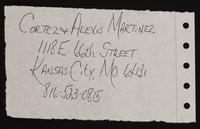 Cortez & Alexis Martinez
1118 E 66th Street
Kansas City, Mo 64131
816-523-0815